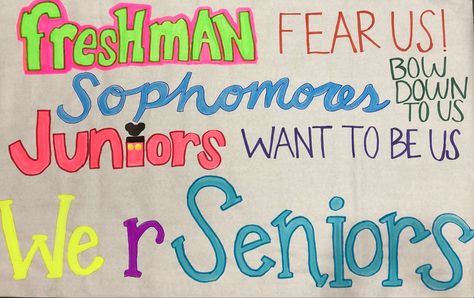 FresHMAN FEAR US!
Sophomores BOW DOWN TO US
Juniors WANT TO BE US
We r Seniors